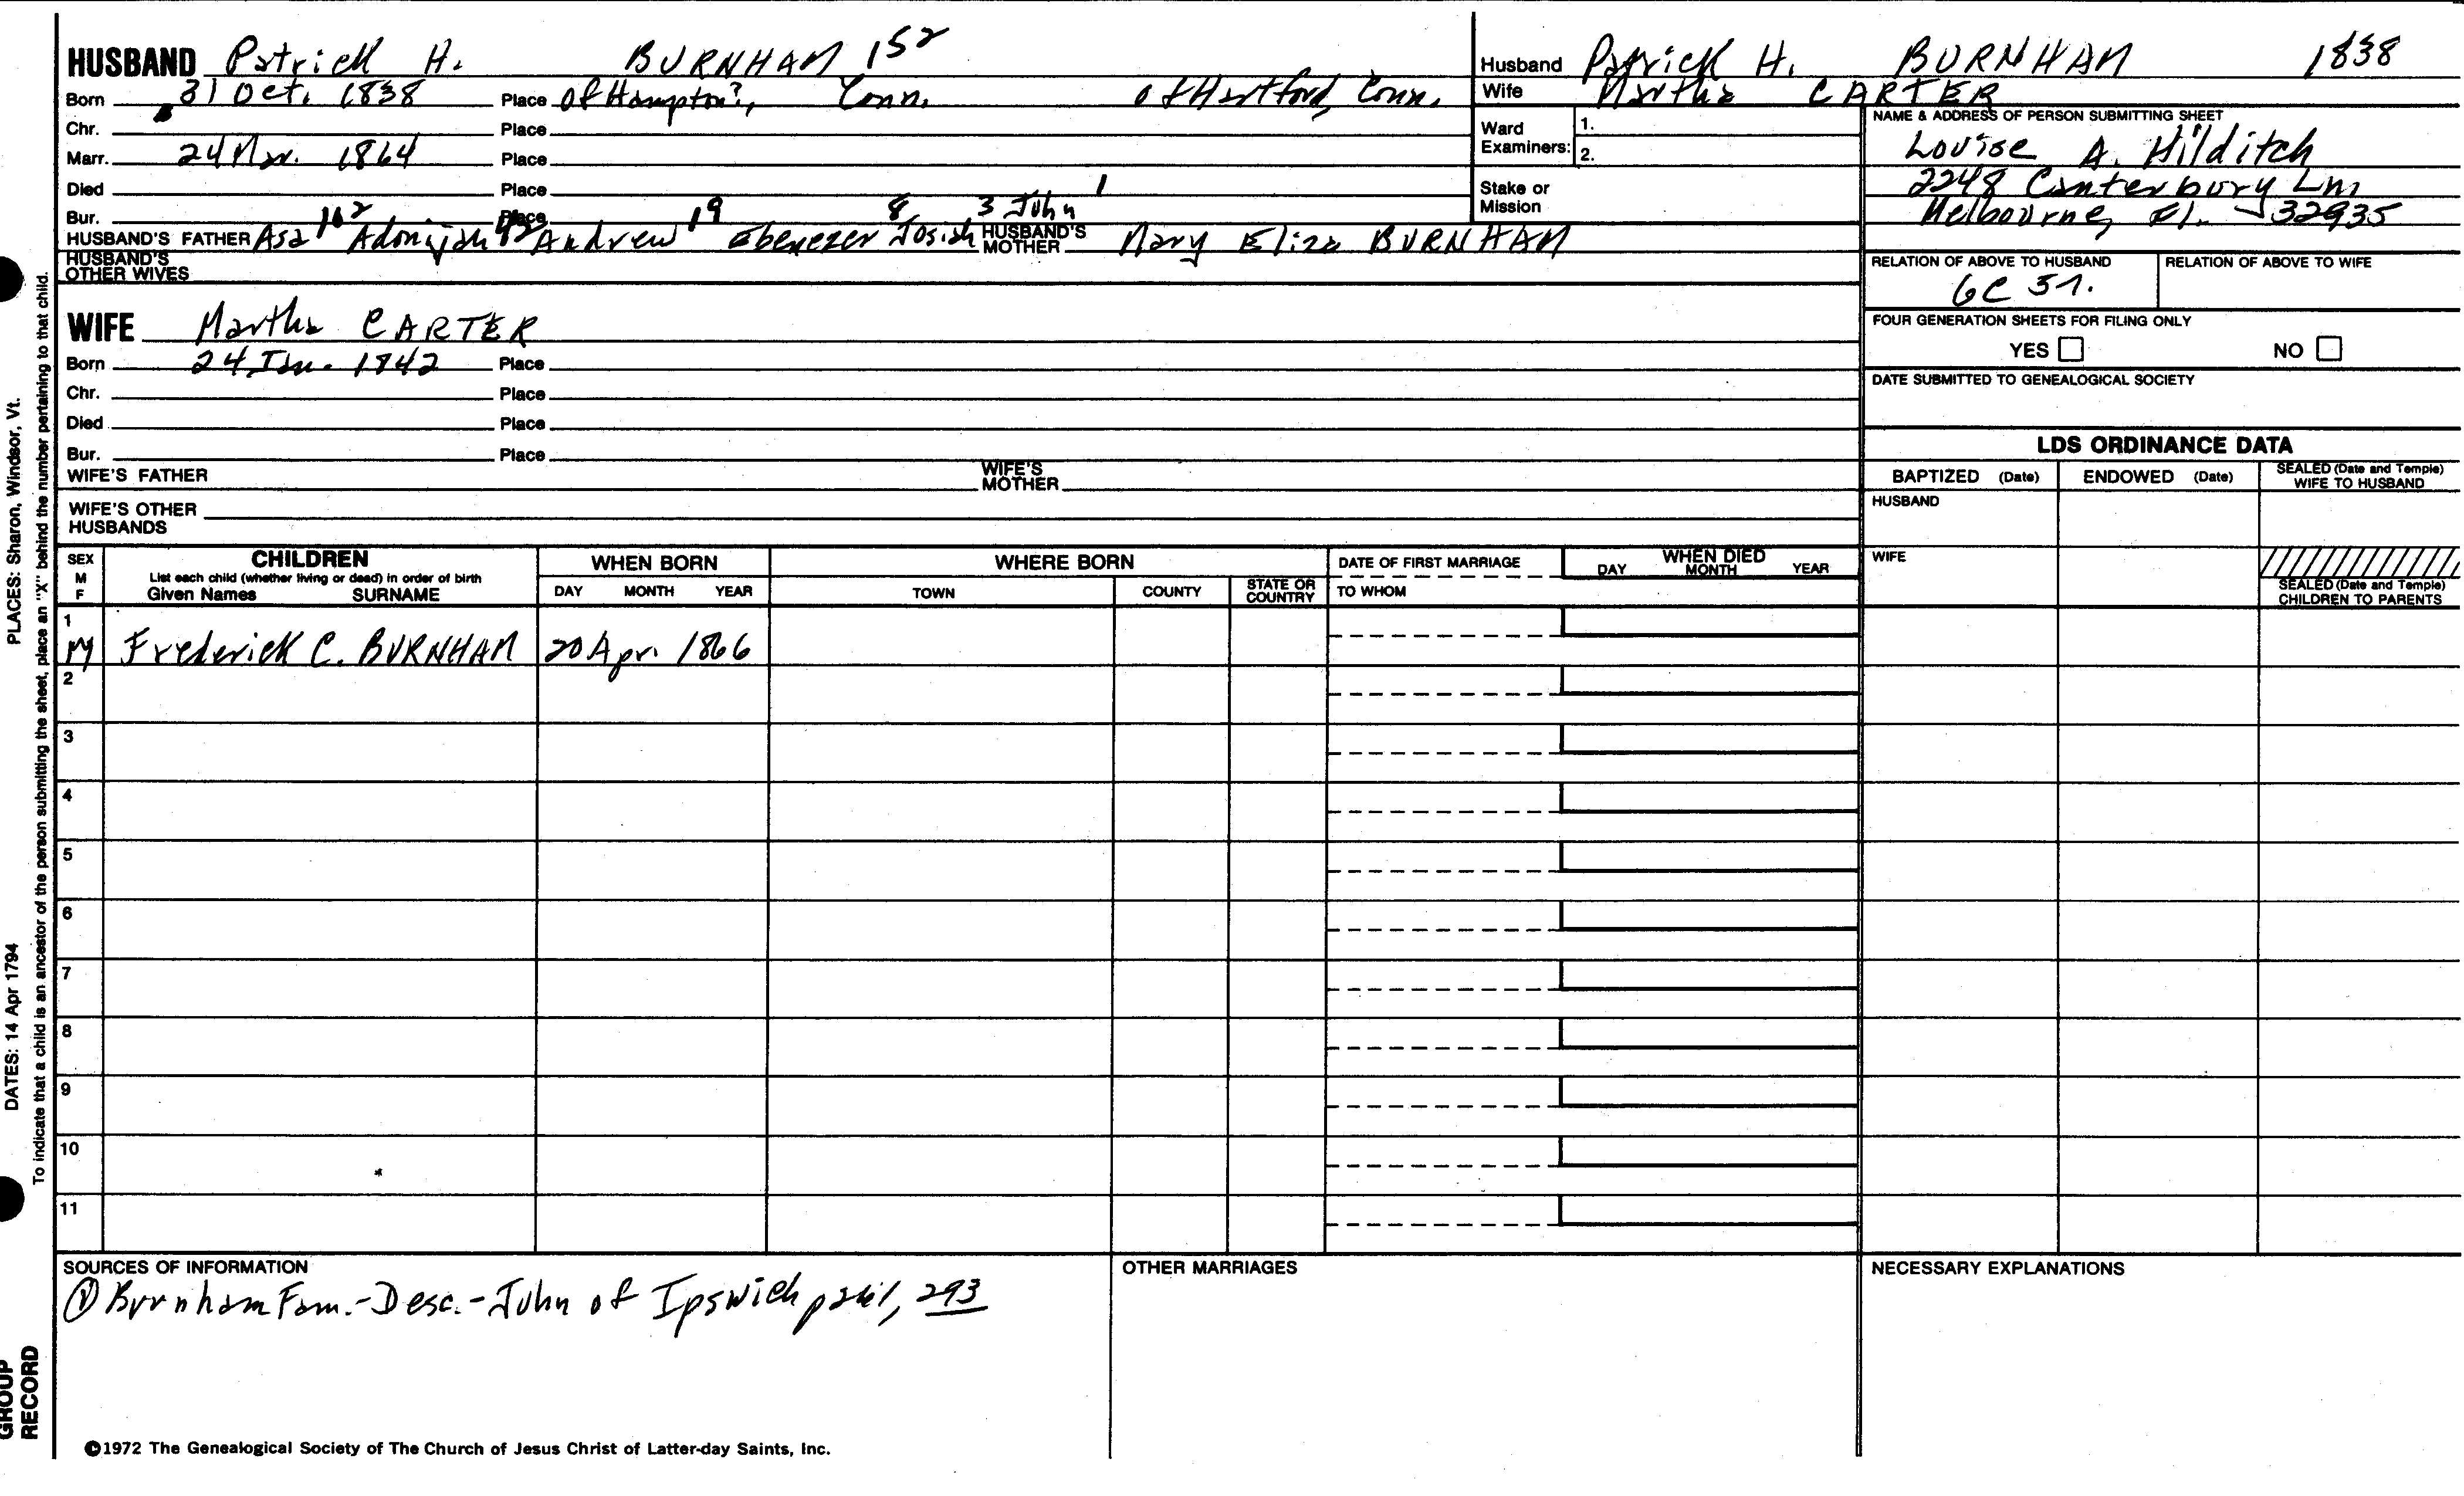 HUSBAND Patrick H. BURNHAM 152
Born 31 Oct. 1838 Place of Hampton?, Conn. of Hartford, Conn.
Chr. Place
Marr. 24 Mar. 1864 Place
Died Place
Bur. Place
HUSBAND'S FATHER Asa 162 Adonijah 42 Andrew 19 Ebenezer 8 Josiah 3 John 1 HUSBAND'S MOTHER Mary Eliza BURNHAM
HUSBAND'S OTHER WIVES
WIFE Martha CARTER
Born 24 Jan. 1842 Place
Chr. Place
Died Place
Bur. Place
WIFE'S FATHER WIFE'S MOTHER
WIFE'S OTHER HUSBANDS
Husband Patrick H. BURNHAM 1838
Wife Martha CARTER
Ward Examiners: 1. 2.
Stake or Mission
NAME & ADDRESS OF PERSON SUBMITTING SHEET
Louise A. Hilditch
2248 Canterbury Ln
Melbourne, Fl. 32935
RELATION OF ABOVE TO HUSBAND RELATION OF ABOVE TO WIFE
6C
FOUR GENERATION SHEETS FOR FILING ONLY
YES NO
DATE SUBMITTED TO GENEALOGICAL SOCIETY
LDS ORDINANCE DATA
BAPTIZED (Date) ENDOWED (Date) SEALED (Date and Temple) WIFE TO HUSBAND
HUSBAND
WIFE
SEALED (Date and Temple) CHILDREN TO PARENTS
SEX M F
CHILDREN
List each child (whether living or dead) in order of birth
Given Names SURNAME
WHEN BORN
DAY MONTH YEAR
WHERE BORN
TOWN COUNTY STATE OR COUNTRY
DATE OF FIRST MARRIAGE
TO WHOM
WHEN DIED
DAY MONTH YEAR
1
M Frederick C. BURNHAM 20 Apr. 1866
2
3
4
5
6
7
8
9
10
11
SOURCES OF INFORMATION
① Burnham Fam.-Desc.-John of Ipswich 293
OTHER MARRIAGES
NECESSARY EXPLANATIONS
©1972 The Genealogical Society of The Church of Jesus Christ of Latter-day Saints, Inc.
PLACES: Sharon, Windsor, Vt.
DATES: 14 Apr 1794
To indicate that a child is an ancestor of the person submitting the sheet, place an "X" behind the number pertaining to that child.
GROUP
RECORD